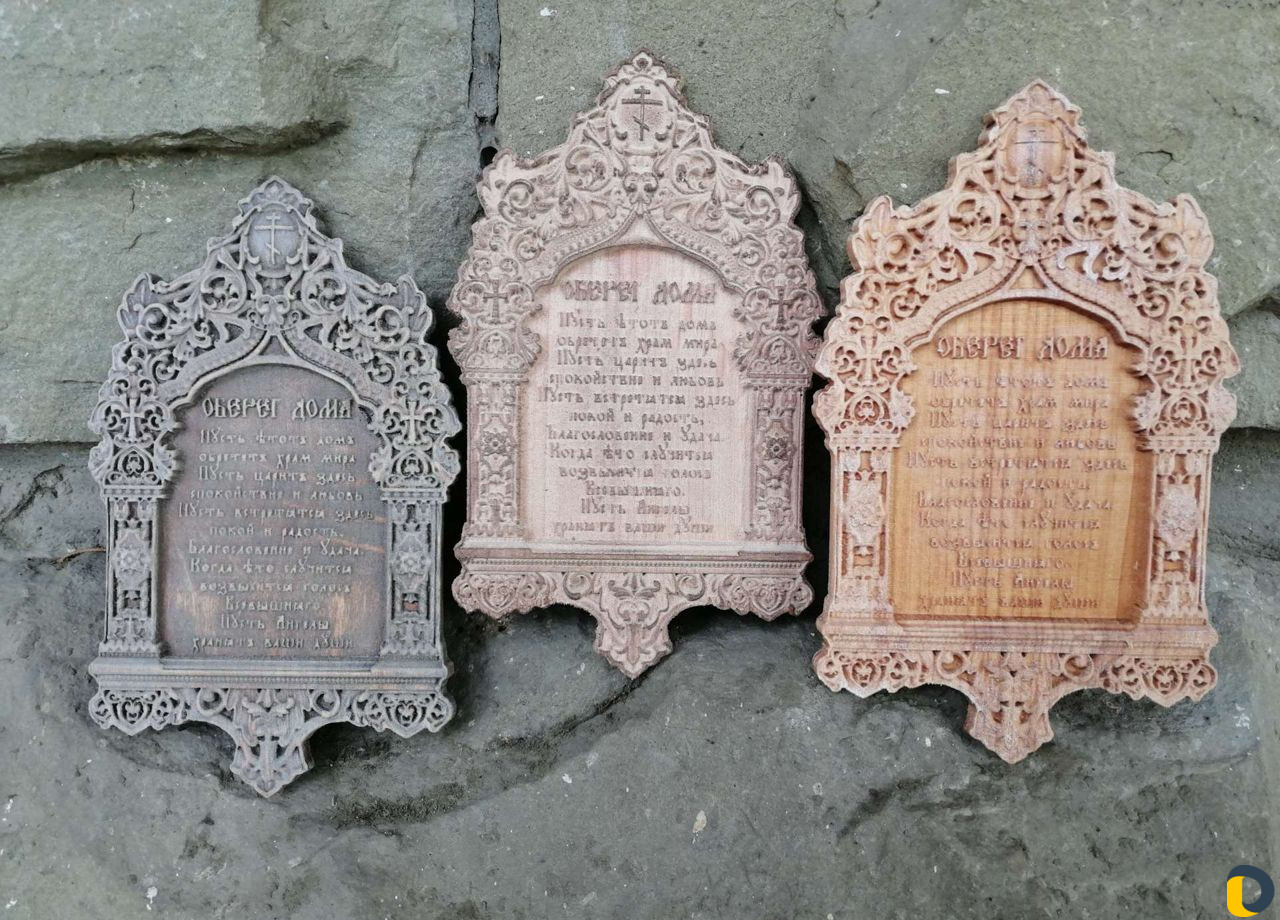 ОБЕРЕГ ДОМА
Пусть ѣтотъ домъ
обрететъ храм мира
Пусть царитъ здесь
спокойствие и любовь
Пусть встретятся здесь
покой и радость,
Благословение и Удача.
Когда ѣто случится
возвысится голосъ
Всевышнего.
Пусть Ангелы
хранятъ ваши души
ОБЕРЕГ ДОМА
Пусть ѣтотъ домъ
обрететъ храм мира
Пусть царитъ здесь
спокойствие и любовь
Пусть встретятся здесь
покой и радость,
Благословение и Удача.
Когда ѣто случится
возвысится голосъ
Всевышнего.
Пусть Ангелы
хранятъ ваши души
ОБЕРЕГ ДОМА
Пусть ѣтотъ домъ
обрететъ храм мира
Пусть царитъ здесь
спокойствие и любовь
Пусть встретятся здесь
покой и радость,
Благословение и Удача.
Когда ѣто случится
возвысится голосъ
Всевышнего.
Пусть Ангелы
хранятъ ваши души